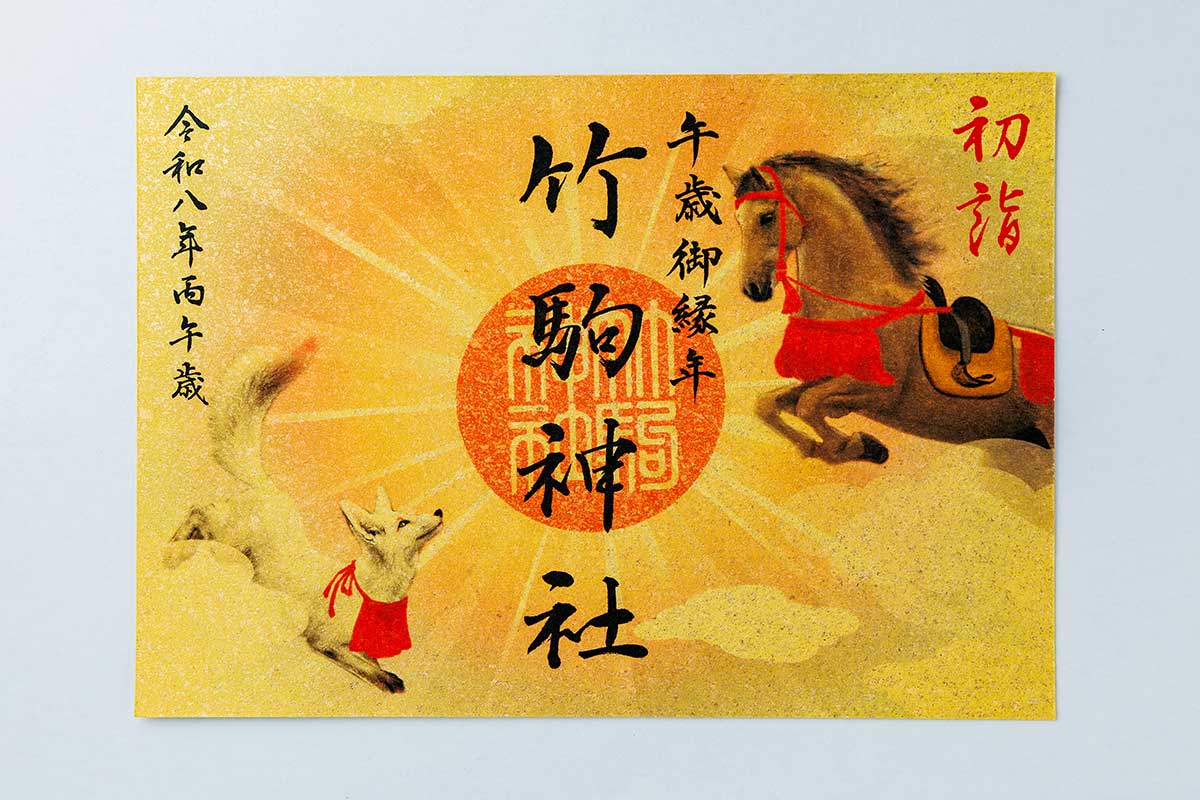 初詣
午歳御縁年
竹駒神社
竹駒神社
令和八年丙午歳